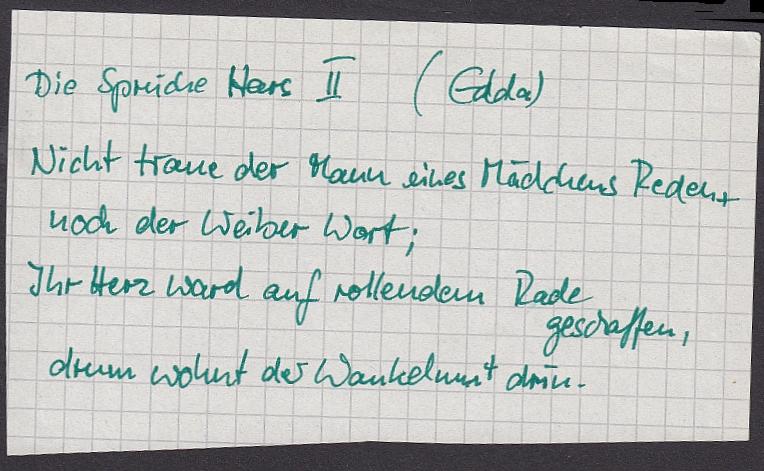 Die Sprüche Hars II (Edda)
Nicht traue der Mann eines Mädchens Reden,
noch der Weiber Wort;
Ihr Herz ward auf rollendem Rade
geschaffen,
drum wohnt der Wankelmut drin.